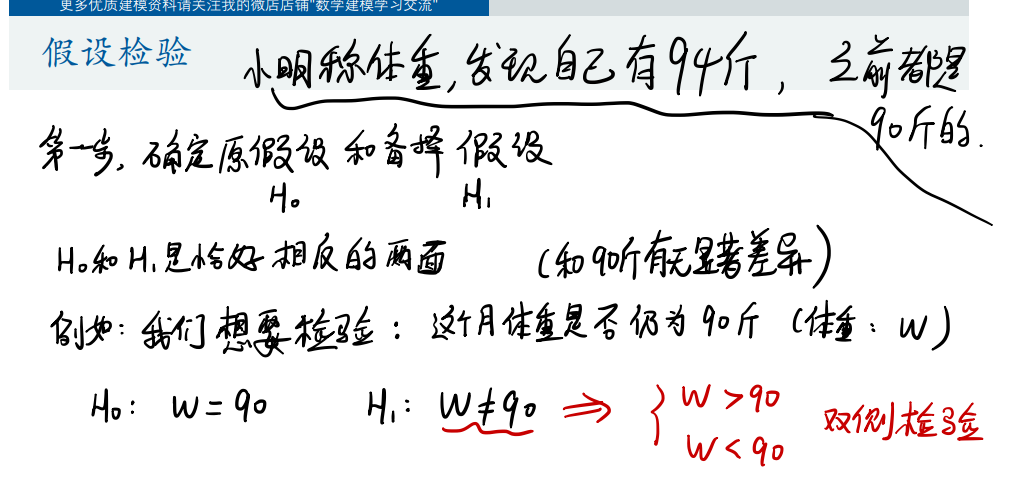 更多优质建模资料请关注我的微店店铺"数学建模学习交流"
假设检验
小明称体重,发现自己有94斤, 之前都是
90斤的.
第一步, 确定原假设 和备择 假设
H₀ H₁
H₀和H₁是恰好相反的两面 (和90斤有无显著差异)
例如: 我们想要检验: 这个月体重是否仍为90斤 (体重: W)
H₀: W=90 H₁: W≠90 ⇒ { W>90
W<90 双侧检验